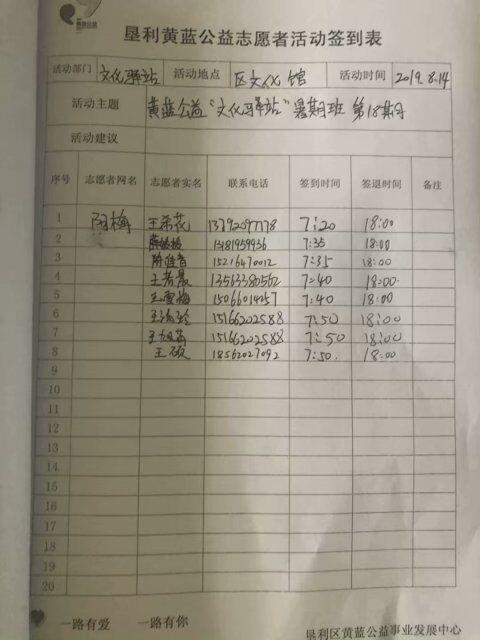 黄蓝公益
垦利黄蓝公益志愿者活动签到表
活动部门 文化驿站 活动地点 区文化馆 活动时间 2019.8.14
活动主题 黄蓝公益“文化驿站”暑期班 第18期
活动建议
序号 志愿者网名 志愿者实名 联系电话 签到时间 签退时间 备注
1 阳梅 王希花 7:20 18:00
2 13181959936 7:35 18:00
3 15216470012 7:35 18:00
4 13563380562 7:40 18:00
5 王雪梅 7:40 18:00
6 15166202588 7:50 18:00
7 15166202588 7:50 18:00
8 王硕 18562027092 7:50. 18:00
9
10
11
12
13
14
15
16
17
18
19
20
一路有爱 一路有你
垦利区黄蓝公益事业发展中心